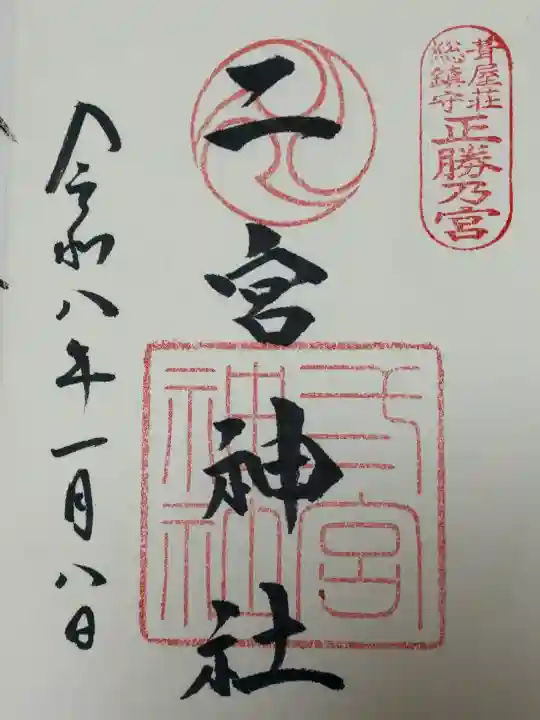 葺屋荘
総鎮守
正勝乃宮
二宮神社
弐宮
神社
令和八年一月八日